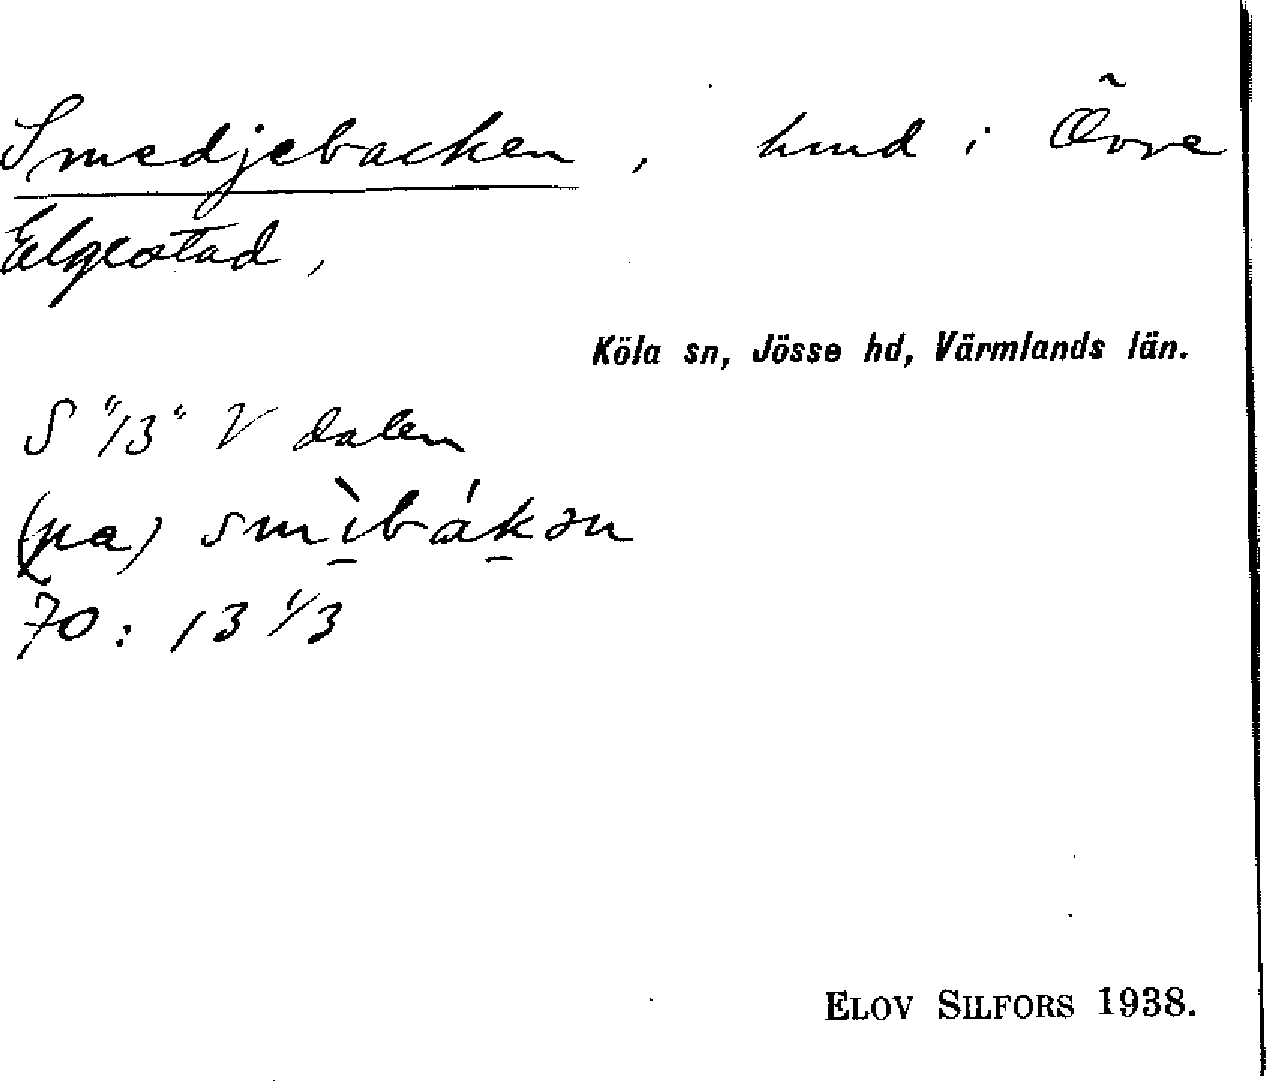 Smedjebacken, hmd i Övre
Elgestad,
Köla sn, Jösse hd, Värmlands län.
S "/3" V dalen
(pa) smìbákən
70: 13 1/3
ELOV SILFORS 1938.